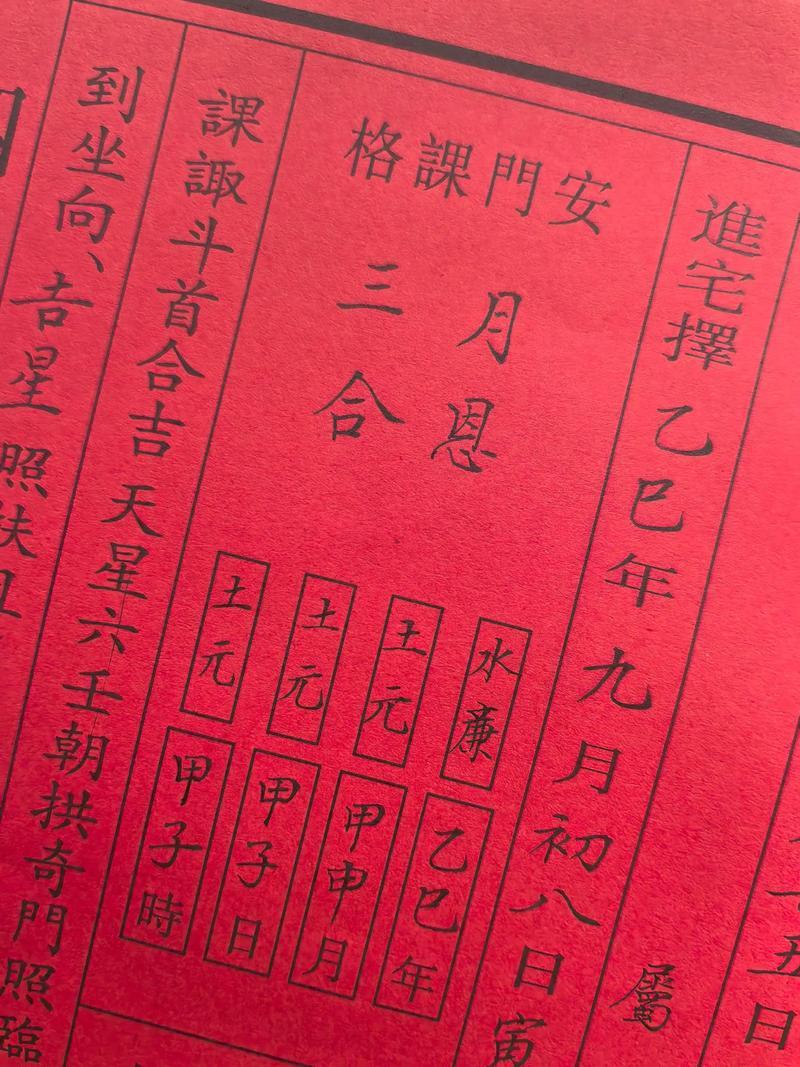 十五日
屬
進宅擇 乙巳年 九月初八日寅
安門課格
月恩
三合
水廉 乙巳年
土元 甲申月
土元 甲子日
土元 甲子時
課諏斗首合吉 天星六壬朝拱奇門照臨
到坐向、吉星照扶